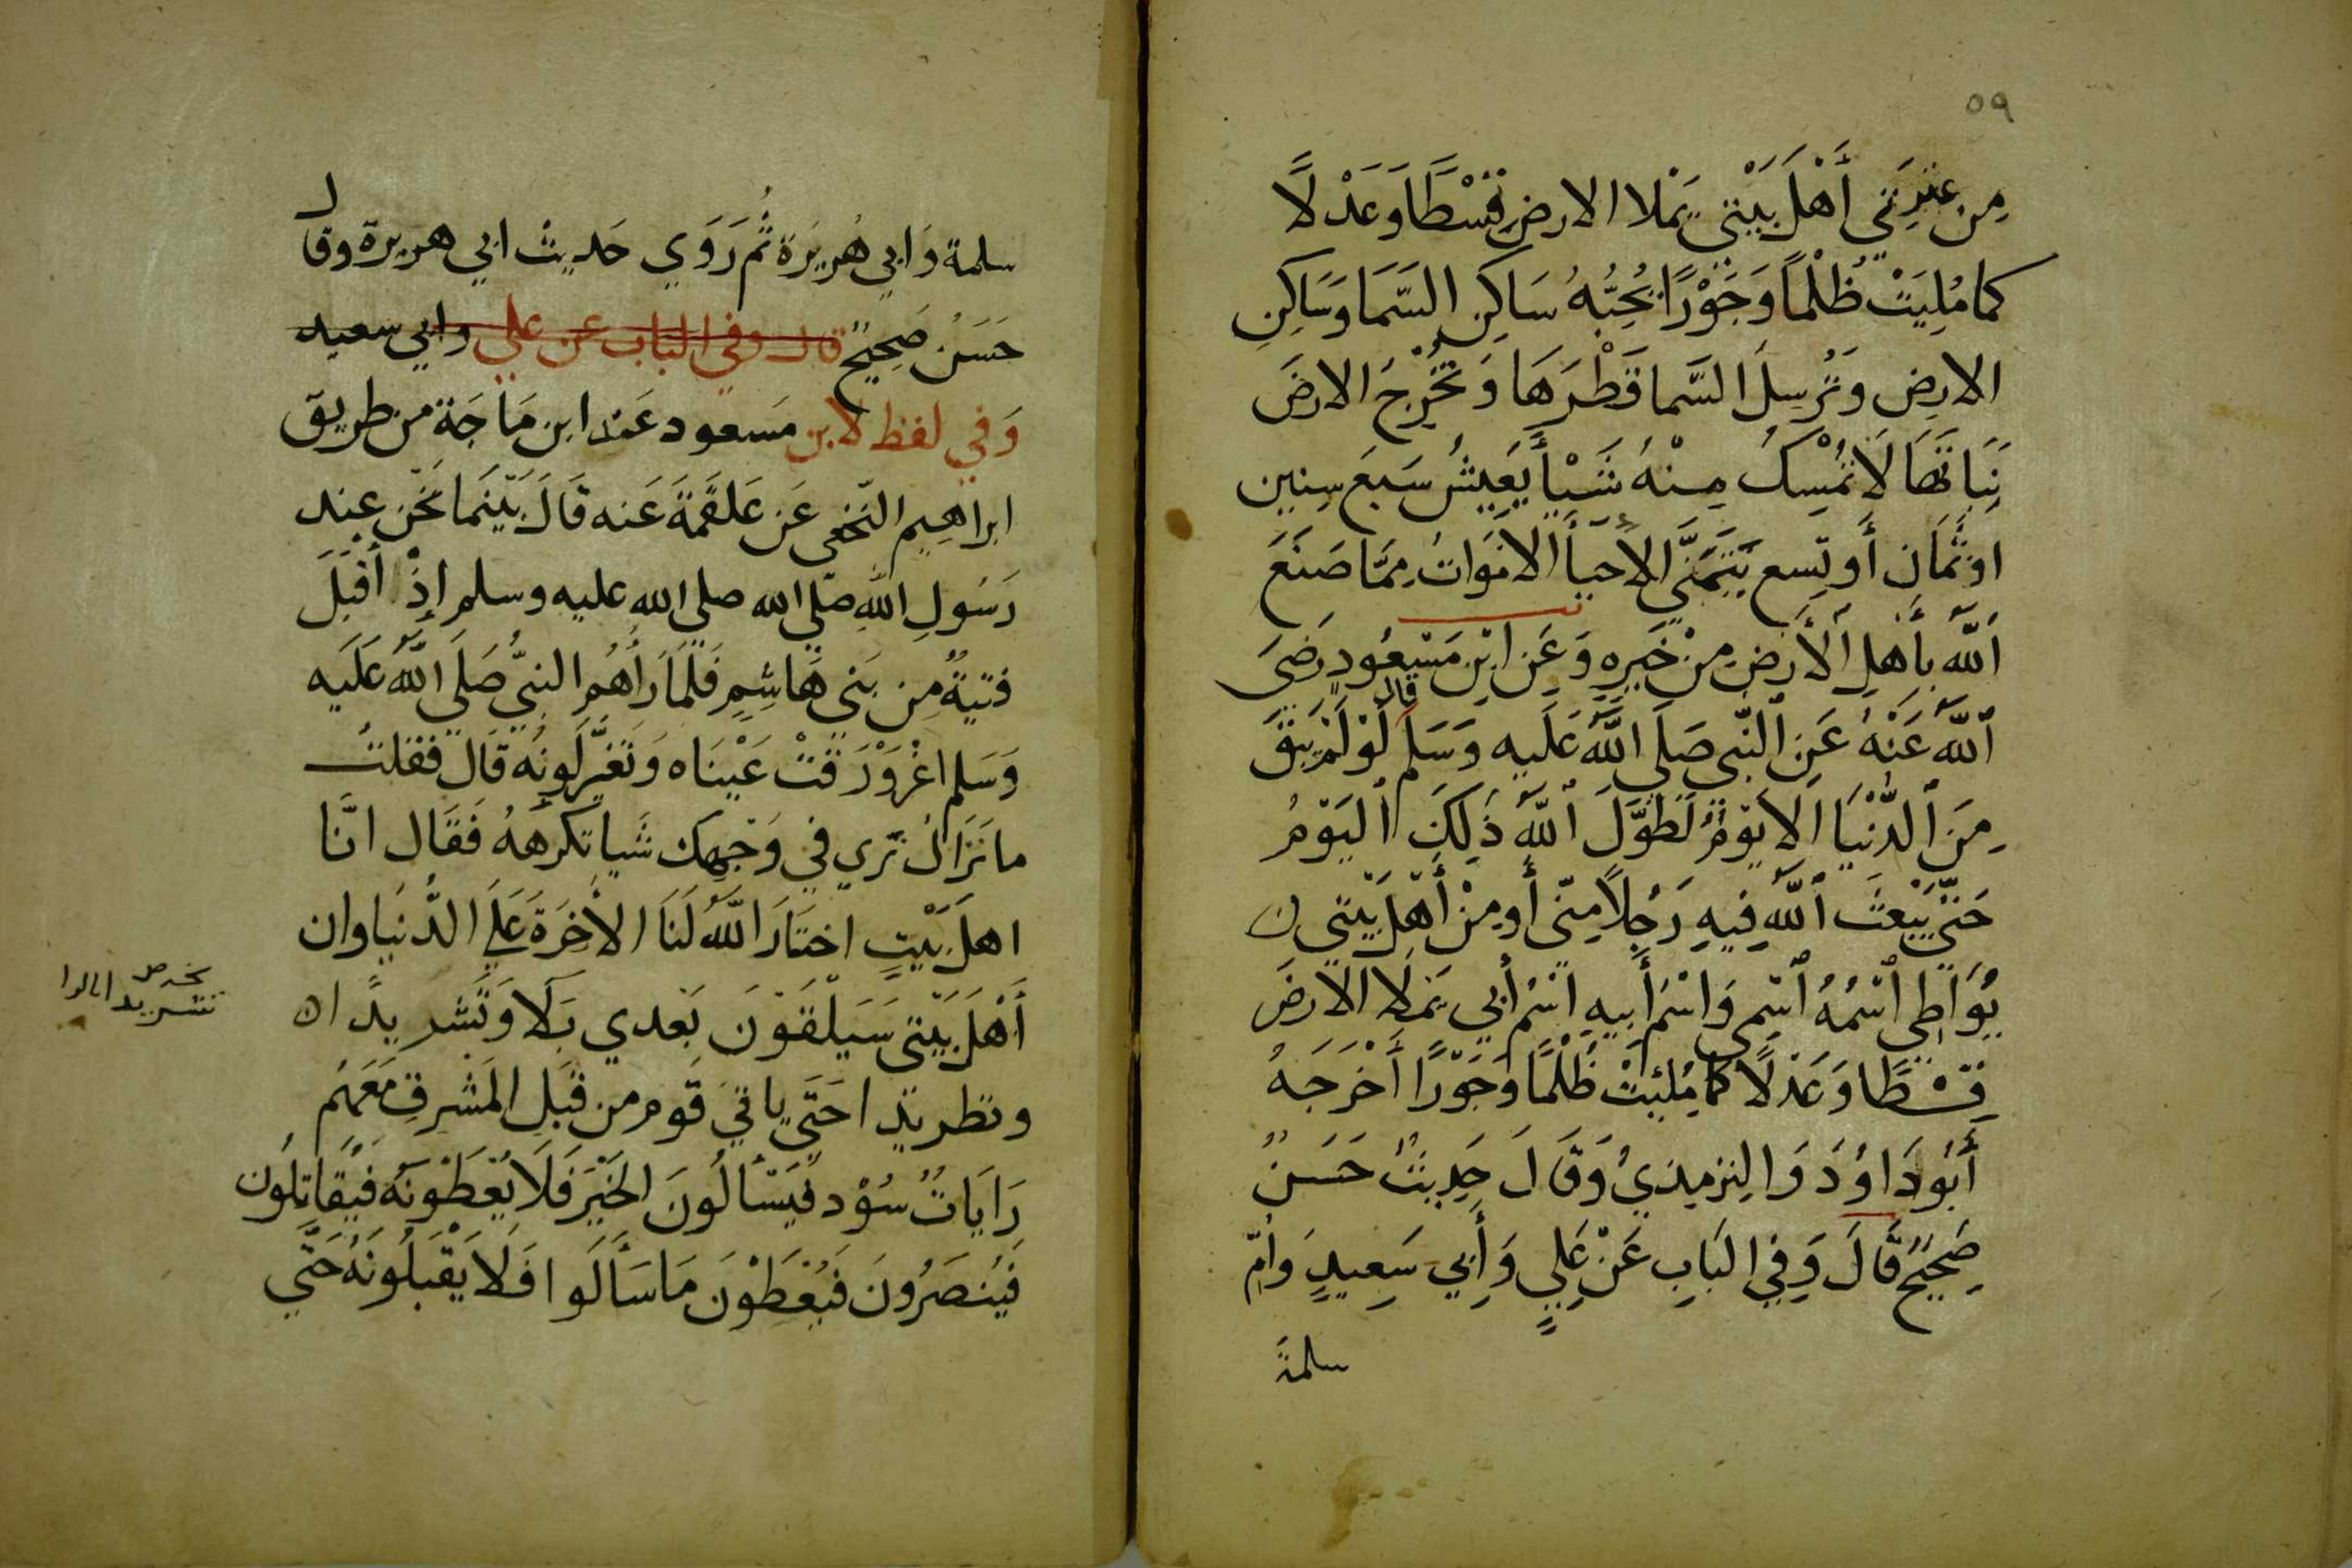 ٥٩
مِن عِترَتِي أَهْلَ بَيْتِي يَمْلا الارضِ قِسْطًا وَعَدْلًا
كما مُلِيَتْ ظُلْمًا وَجَوْرًا يُحِبُّهُ سَاكِنِ السَّمَا وَسَاكِنِ
الارضِ وَتُرسِلَ السَّما قَطْرَهَا وَتُخْرِجُ الارضَ
نَبَاتَهَا لَا تُمْسِكُ مِنْهُ شَيْأً يَعِيشُ سَبعَ سِنِين
او ثَمَانِ أَو تِسع يَتَمَنَّي الأحيأ الامَوَاتُ مِمَّا صَنَعَ
اَللَّهُ بأَهْلِ الْأَرضِ مِنْ خَيرِهِ وَعَنِ ابْنِ مَسْعُودٍ رَضِيَ
اَللَّهُ عَنْهُ عَنِ النَّبِي صَلَى اللَّهُ عَلَيهِ وَسَلم قال لَوْ لَمْ يَبْقَ
مِنَ الدُّنْيَا الا يَومٌ لَطَوَّلَ اللَّهُ ذَلِكَ اليَوْمُ
حَتَّي يَبْعَثَ اللَّهُ فِيهِ رَجُلًا مِنّي أَو مِنْ أَهْلِ بَيْتِي
يُوَاطِي اسْمُهُ اسْمِي وَاسْمُ أَبِيهِ اسْمُ أَبِي يَمَلا الارضَ
قِسْطًا وَعَدْلًا كَمَا مُلِيَتْ ظُلْمًا وَجَوْرًا أَخْرَجَهُ
أَبُو دَاوُدَ وَالتِرمِيذيُ وَقَالَ حَدِيثٌ حَسَنٌ
صَحِيحٌ قَالَ وَفِي البَابِ عَنْ عَلِيٍ وَأَبِي سَعِيدٍ وَأُمِّ
سلمة
سلمة وَابي هُرَيرَة ثُمَّ رَوَي حَديثَ ابي هريرة وقال
حَسَنُ صَحِيحٌ قال وفي الباب عن علي وابي سعيد
وَفي لفظ لابن مَسعود عَند ابن مَاجَة من طريق
ابراهيم النّخعي عَن عَلقمَةَ عَنه قَالَ بَيْنَما نَحْنُ عِند
رَسُولِ اللهِ صَلى الله صلي الله عليه وسلم إذْ أقبَلَ
فتيةٌ من بَني هَاشِمٍ فَلَمَا رَأَهُم النبيُّ صَلَي اللَّهُ عَلَيه
وَسَلم اغْرَوْرَقَتْ عَيْنَاه وَتَغَيَّرَ لَونُه قال فقلتُ
ما نَزَالُ نَرَي في وَجْهِك شَيا تكرهَهُ فَقَال انَّا
اهلَ بَيْتٍ اختَارَ اللَّهُ لَنَا الأخِرَةَ عَلَي الدُّنيَا وان
أَهْلَ بَيْتِي سَيَلْقَوْنَ بَعدي بَلَا وَتَشريدًا
وتطريدًا حَتَّي ياتيَ قَومٌ من قِبَلِ المَشرقِ مَعَهُم
رَايَاتٌ سُوْد فَيَسْألُونَ الخَيْرَ فَلَا يُعْطَوْنَهُ فَيُقَاتِلُون
فَيُنصَرُونَ فَيُعْطَوْنَ مَا سَأَلَوا فَلَا يَقْبَلُونَهُ حَتَّي